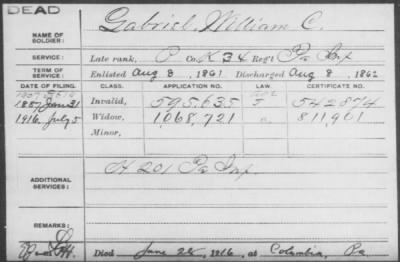 DEAD
NAME OF SOLDIER: Gabriel, William C.
SERVICE: Late rank, P Co. K 34 Reg't Pa Inf
TERM OF SERVICE: Enlisted Aug 8, 1861 Discharged Aug 8, 1862
DATE OF FILING. CLASS. APPLICATION NO. LAW. CERTIFICATE NO.
1887 Jan 31 Invalid, 595,635 542874
1916, July 5 Widow, 1,068,721 811,961
Minor,
ADDITIONAL SERVICES: H 201 Pa Inf.
REMARKS:
Died June 28, 1916, at Columbia, Pa.